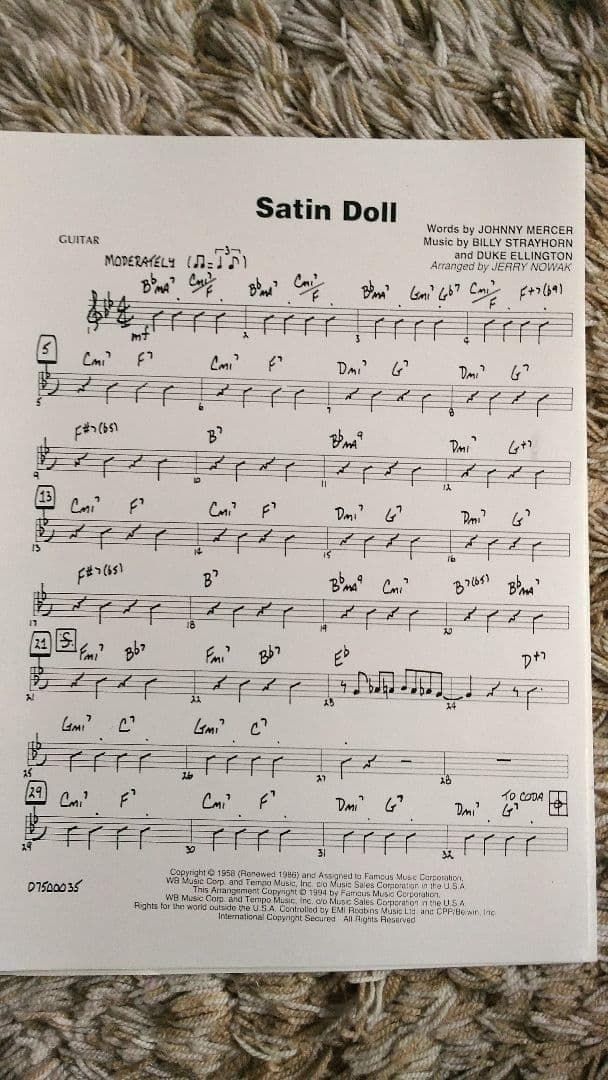 Satin Doll
GUITAR
Words by JOHNNY MERCER
Music by BILLY STRAYHORN
and DUKE ELLINGTON
Arranged by JERRY NOWAK
MODERATELY (♫=♩♪) 3
B♭MA7 Cmi7/F B♭MA7 Cmi7/F B♭MA7 Gmi7 G♭7 Cmi7/F F+7(♭9)
mf
1 2 3 4
5 Cmi7 F7 Cmi7 F7 Dmi7 G7 Dmi7 G7
5 6 7 8
F#7(♭5) B7 B♭MA9 Dmi7 G+7
9 10 11 12
13 Cmi7 F7 Cmi7 F7 Dmi7 G7 Dmi7 G7
13 14 15 16
F#7(♭5) B7 B♭MA9 Cmi7 B7(♭5) B♭MA7
17 18 19 20
21 Fmi7 B♭7 Fmi7 B♭7 E♭ D+7
21 22 23 24
Gmi7 C7 Gmi7 C7
25 26 27 28
29 Cmi7 F7 Cmi7 F7 Dmi7 G7 Dmi7 G7 TO CODA
29 30 31 32
D7500035
Copyright © 1958 (Renewed 1986) and Assigned to Famous Music Corporation,
WB Music Corp. and Tempo Music, Inc. c/o Music Sales Corporation in the U.S.A.
This Arrangement Copyright © 1994 by Famous Music Corporation,
WB Music Corp. and Tempo Music, Inc. c/o Music Sales Corporation in the U.S.A.
Rights for the world outside the U.S.A. Controlled by EMI Robbins Music Ltd. and CPP/Belwin, Inc.
International Copyright Secured All Rights Reserved